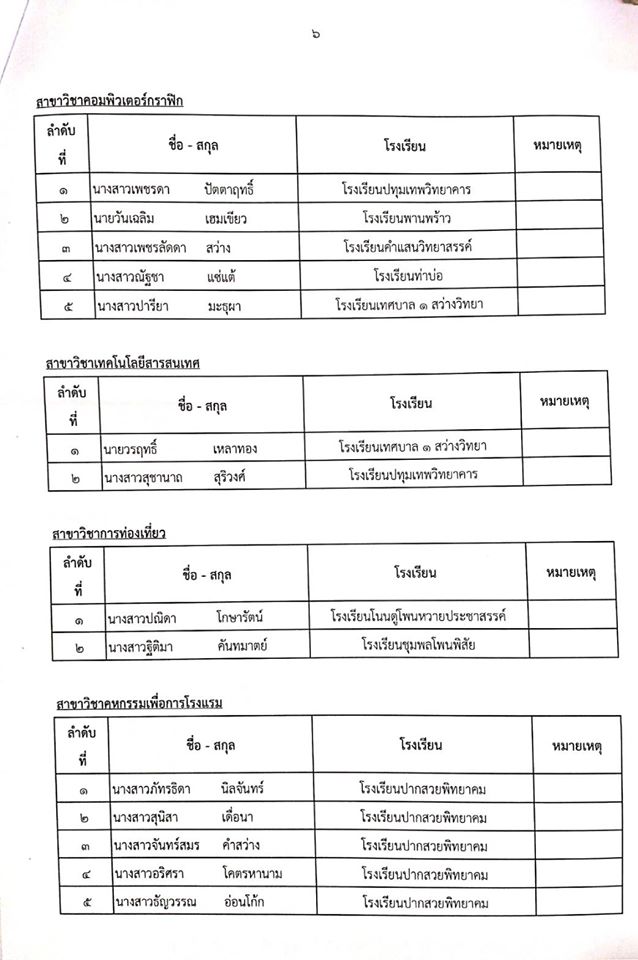 ๖
สาขาวิชาคอมพิวเตอร์กราฟิก
ลำดับที่ ชื่อ - สกุล โรงเรียน หมายเหตุ
๑ นางสาวเพชรดา ปัตตาฤทธิ์ โรงเรียนปทุมเทพวิทยาคาร
๒ นายวันเฉลิม เฮมเขียว โรงเรียนพานพร้าว
๓ นางสาวเพชรลัดดา สว่าง โรงเรียนคำแสนวิทยาสรรค์
๔ นางสาวณัฐชา แซ่แต้ โรงเรียนท่าบ่อ
๕ นางสาวปารียา มะธุผา โรงเรียนเทศบาล ๑ สว่างวิทยา
สาขาวิชาเทคโนโลยีสารสนเทศ
ลำดับที่ ชื่อ - สกุล โรงเรียน หมายเหตุ
๑ นายวรฤทธิ์ เหลาทอง โรงเรียนเทศบาล ๑ สว่างวิทยา
๒ นางสาวสุชานาถ สุริวงศ์ โรงเรียนปทุมเทพวิทยาคาร
สาขาวิชาการท่องเที่ยว
ลำดับที่ ชื่อ - สกุล โรงเรียน หมายเหตุ
๑ นางสาวปณิดา โกษารัตน์ โรงเรียนโนนดู่โพนหวายประชาสรรค์
๒ นางสาวฐิติมา คันทมาตย์ โรงเรียนชุมพลโพนพิสัย
สาขาวิชาคหกรรมเพื่อการโรงแรม
ลำดับที่ ชื่อ - สกุล โรงเรียน หมายเหตุ
๑ นางสาวภัทรธิดา นิลจันทร์ โรงเรียนปากสวยพิทยาคม
๒ นางสาวสุนิสา เดื่อนา โรงเรียนปากสวยพิทยาคม
๓ นางสาวจันทร์สมร คำสว่าง โรงเรียนปากสวยพิทยาคม
๔ นางสาวอริศรา โคตรหานาม โรงเรียนปากสวยพิทยาคม
๕ นางสาวธัญวรรณ อ่อนโก้ก โรงเรียนปากสวยพิทยาคม